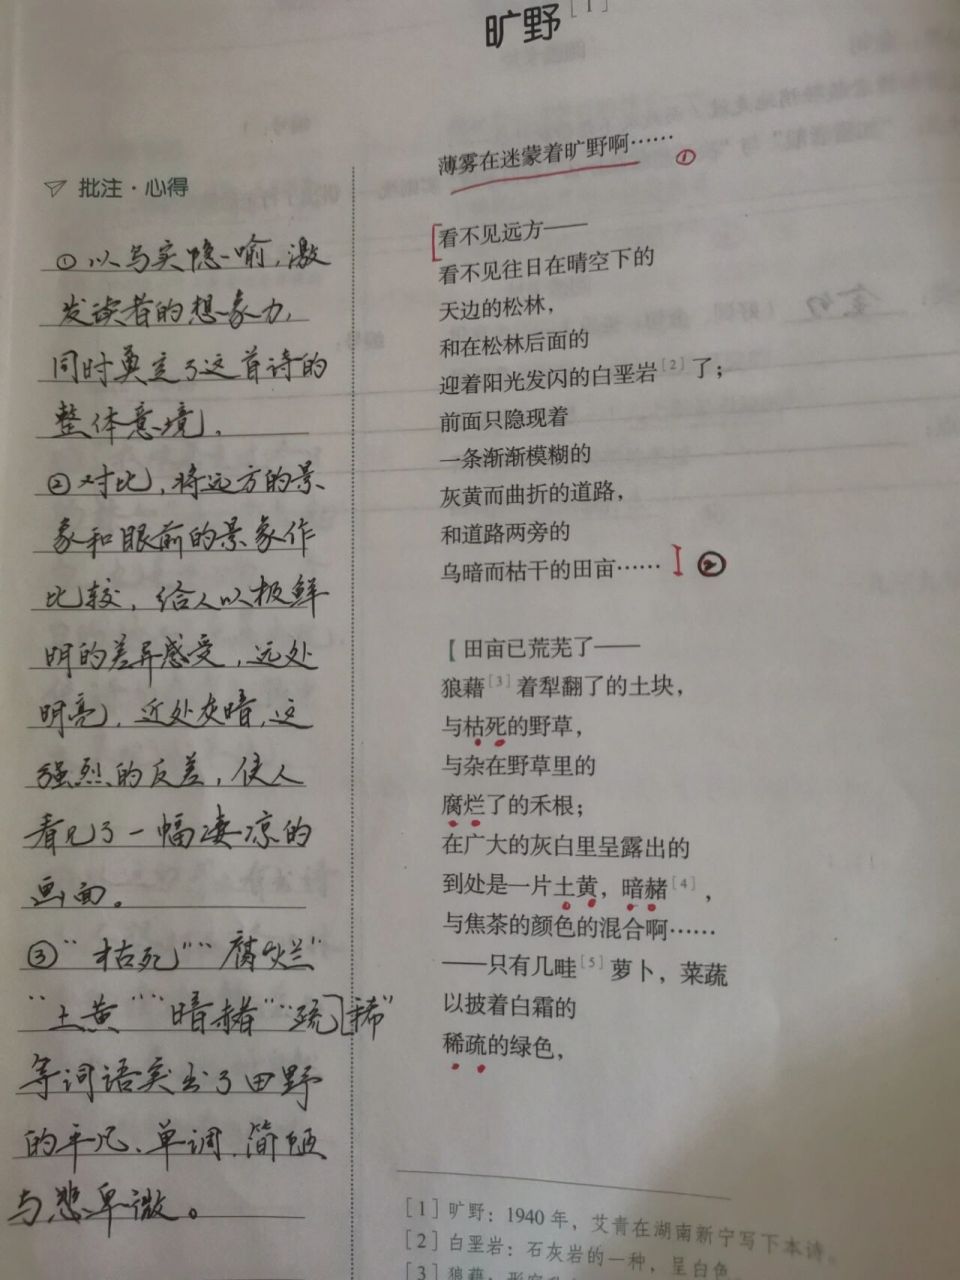 旷野[1]
薄雾在迷蒙着旷野啊……
①
看不见远方——
看不见往日在晴空下的
天边的松林，
和在松林后面的
迎着阳光发闪的白垩岩[2]了；
前面只隐现着
一条渐渐模糊的
灰黄而曲折的道路，
和道路两旁的
乌暗而枯干的田亩……
②
【田亩已荒芜了——
狼藉[3]着犁翻了的土块，
与枯死的野草，
与杂在野草里的
腐烂了的禾根；
在广大的灰白里呈露出的
到处是一片土黄，暗赭[4]，
与焦茶的颜色的混合啊……
——只有几畦[5]萝卜，菜蔬
以披着白霜的
稀疏的绿色，
批注·心得
①以写实隐喻，激
发读者的想象力，
同时奠定了这首诗的
整体意境。
②对比，将远方的景
象和眼前的景象作
比较，给人以极鲜
明的差异感受，远处
明亮，近处灰暗，这
强烈的反差，使人
看见了一幅凄凉的
画面。
③“枯死”“腐烂”
“土黄”“暗赭”“疏稀”
等词语突出了田野
的平凡、单调、简陋
与悲卑微。
[1]旷野：1940年，艾青在湖南新宁写下本诗。
[2]白垩岩：石灰岩的一种，呈白色
[3]狼藉：形容